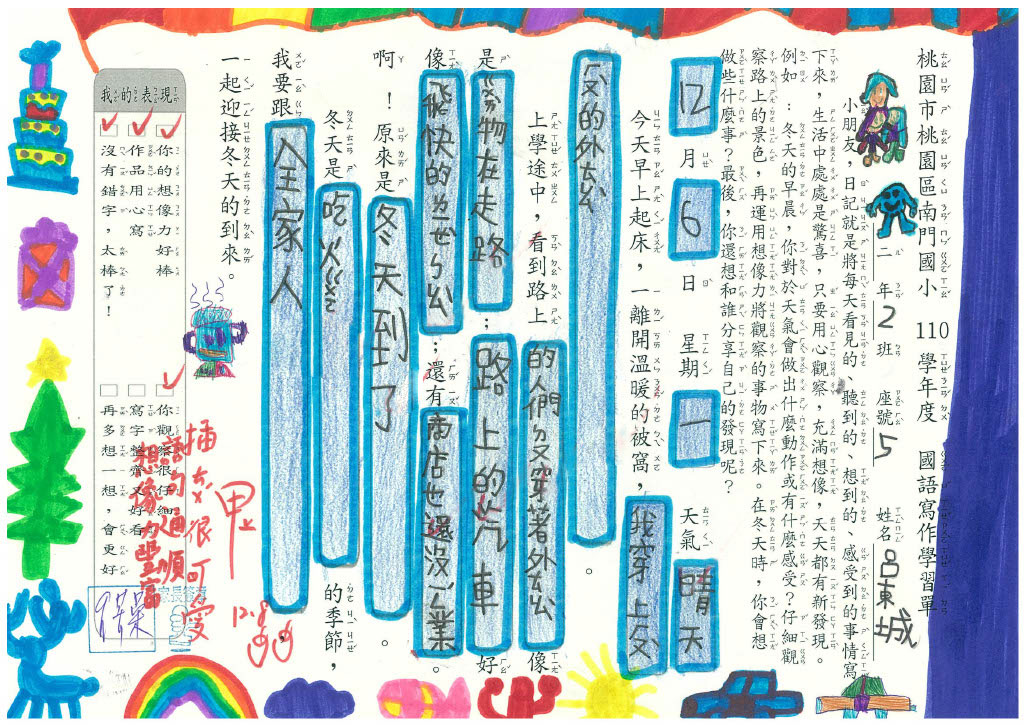 桃園市桃園區南門國小 110 學年度 國語寫作學習單
二年2班 座號5 姓名呂東城
小朋友,日記就是將每天看見的、聽到的、想到的、感受到的事情寫
下來,生活中處處是驚喜,只要用心觀察,充滿想像,天天都有新發現。
例如:冬天的早晨,你對於天氣會做出什麼動作或有什麼感受?仔細觀
察路上的景色,再運用想像力將觀察的事物寫下來。在冬天時,你會想
做些什麼事?最後,你還想和誰分享自己的發現呢?
12月6日 星期一 天氣晴天
今天早上起床,一離開溫暖的被窩,我穿上ㄆ
ㄆ的外ㄊㄠ。
上學途中,看到路上的人們ㄉㄡ穿著外ㄊㄠ像
是ㄍㄨㄞ物在走路…路上的汽車好
像飛快的ㄧㄝㄋㄠ…還有商店也還沒ㄧㄥ業。
啊!原來是冬天到了。
冬天是吃火ㄍㄨㄛ的季節,
我要跟全家人,
一起迎接冬天的到來。
我的表現
你的想像力好棒
作品用心寫
沒有錯字,太棒了!
你觀察很仔細
寫字整齊又好看
再多想一想,會更好
插ㄊㄨˊ很可愛
語句通順
想像力豐富
甲上